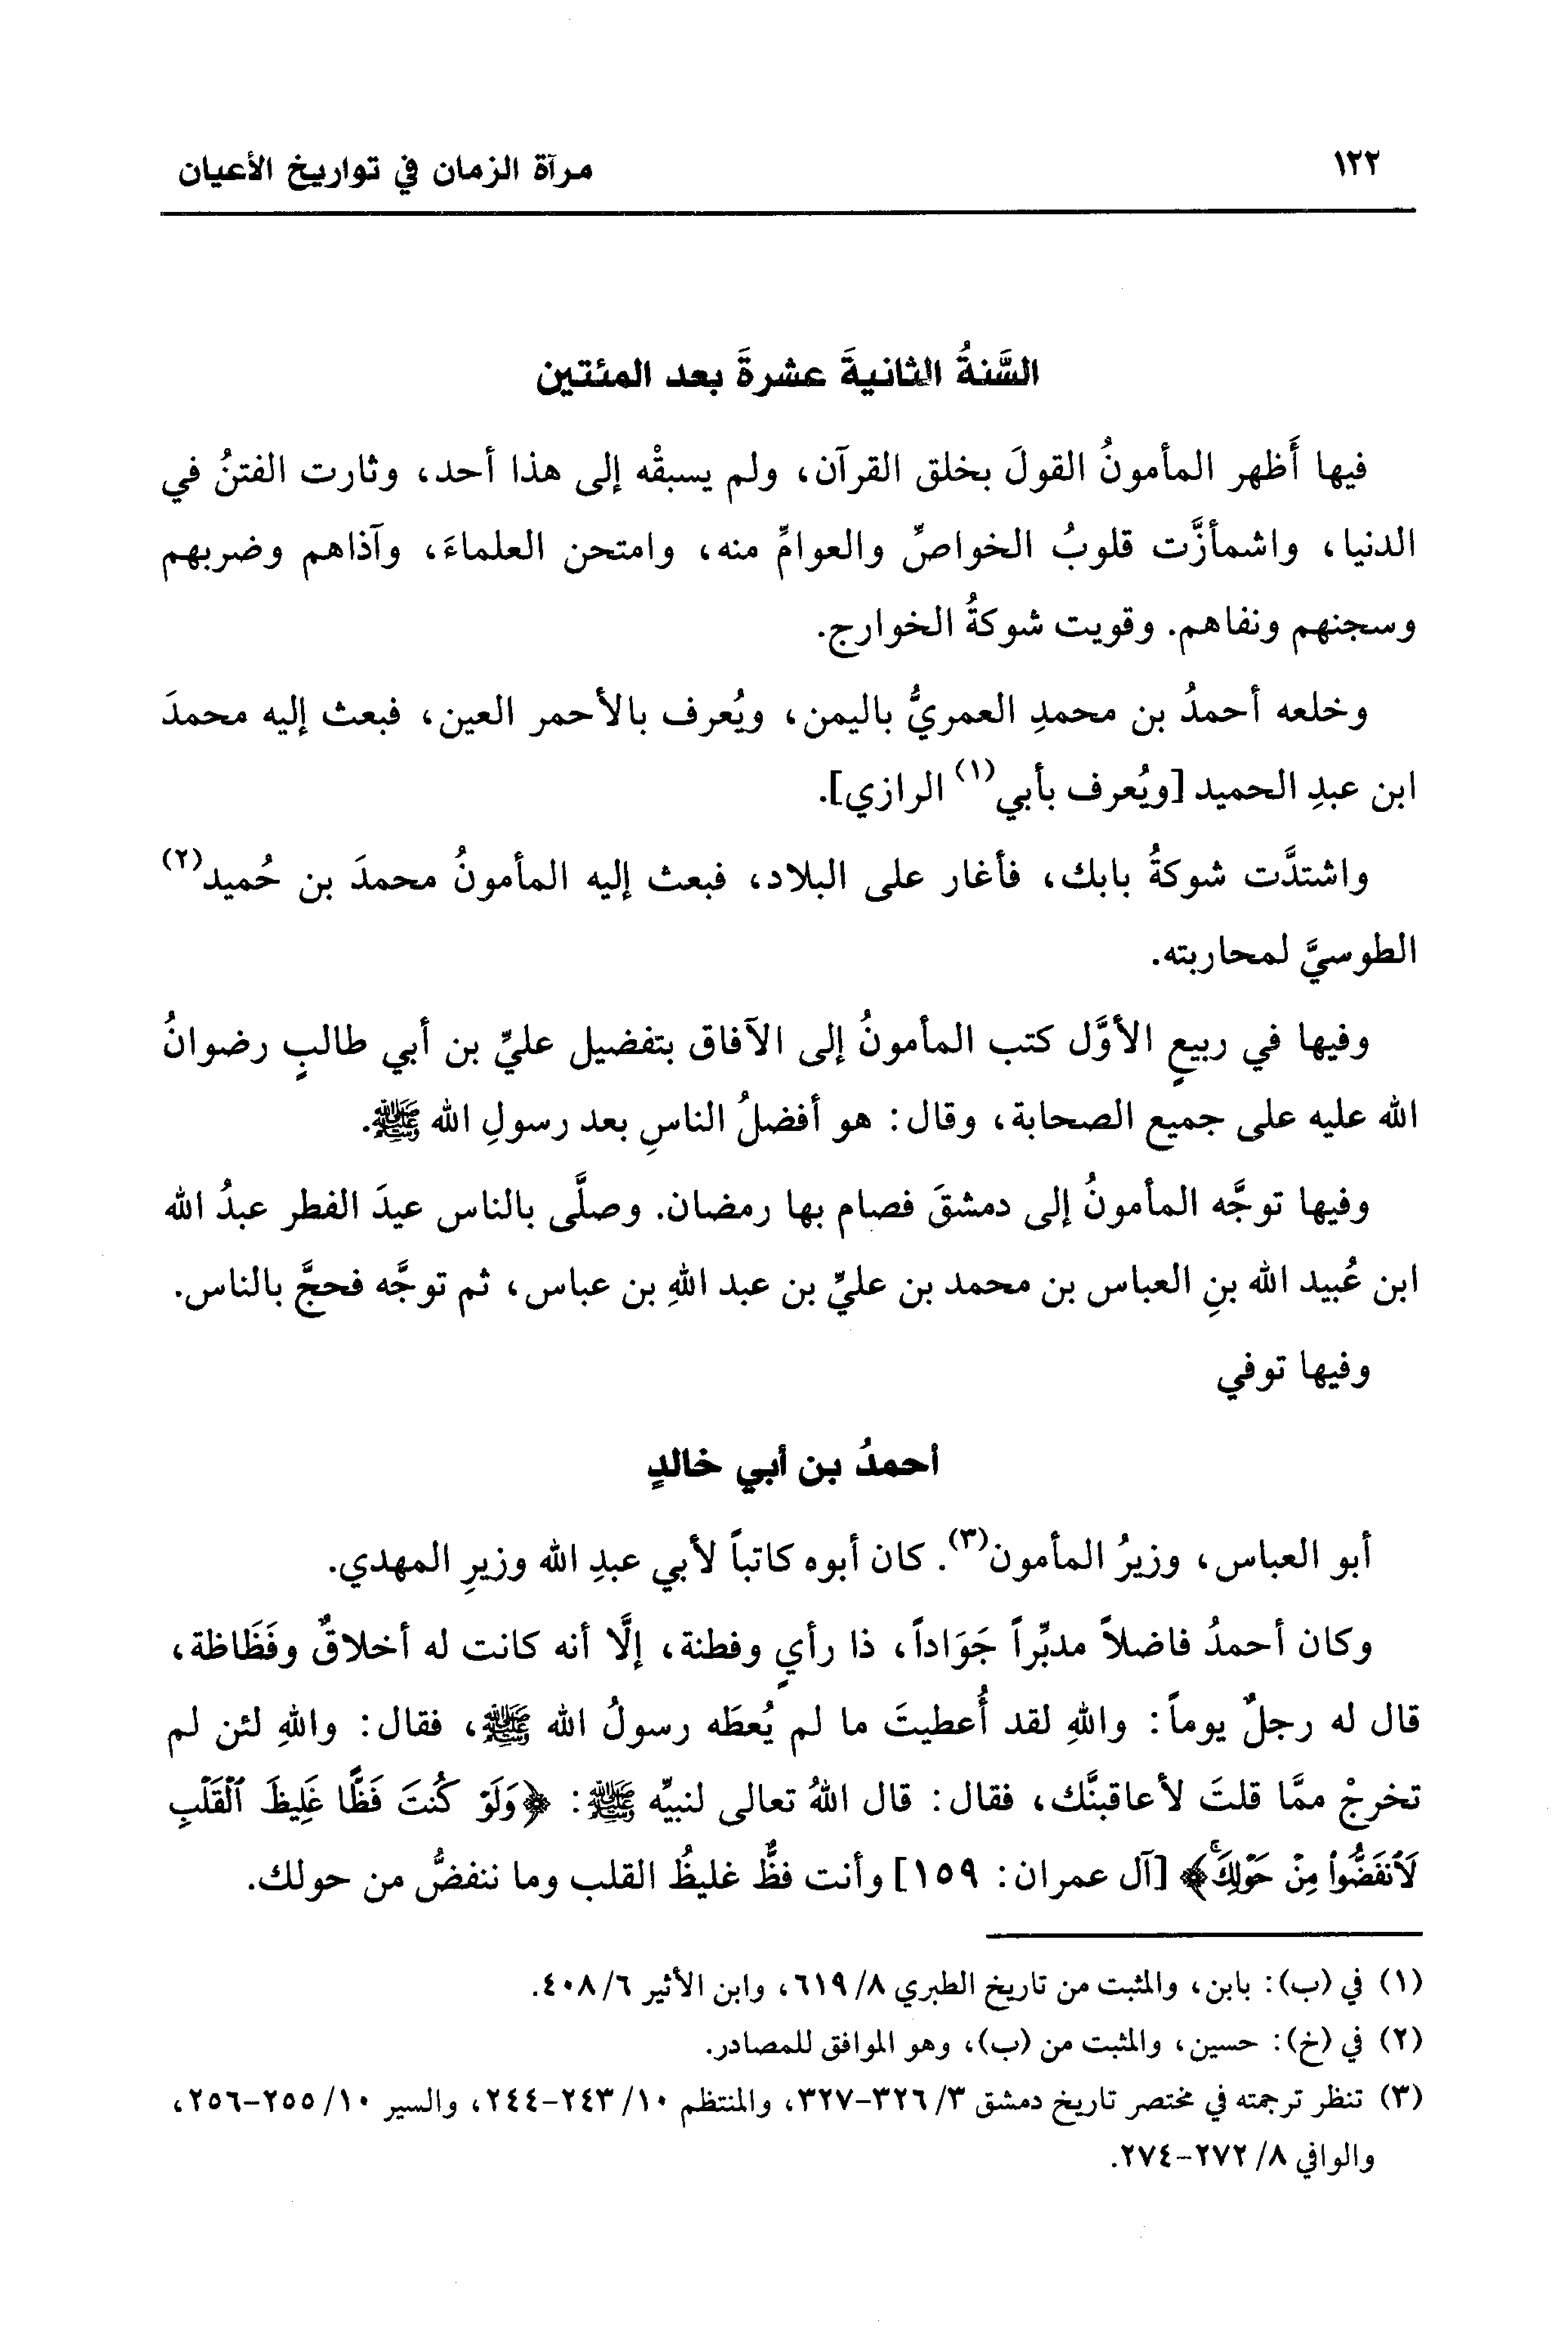 ١٢٢
مرآة الزمان في تواريخ الأعيان
السَّنةُ الثانيةَ عشرةَ بعد المئتين
فيها أَظهر المأمونُ القولَ بخلق القرآن، ولم يسبقْه إلى هذا أحد، وثارت الفتنُ في
الدنيا، واشمأزَّت قلوبُ الخواصِّ والعوامِّ منه، وامتحن العلماءَ، وآذاهم وضربهم
وسجنهم ونفاهم. وقويت شوكةُ الخوارج.
وخلعه أحمدُ بن محمدِ العمريُّ باليمن، ويُعرف بالأحمر العين، فبعث إليه محمدَ
ابن عبدِ الحميد [ويُعرف بأبي(١) الرازي].
واشتدَّت شوكةُ بابك، فأغار على البلاد، فبعث إليه المأمونُ محمدَ بن حُميد(٢)
الطوسيَّ لمحاربته.
وفيها في ربيعٍ الأوَّل كتب المأمونُ إلى الآفاق بتفضيل عليِّ بن أبي طالبٍ رضوانُ
الله عليه على جميع الصحابة، وقال: هو أفضلُ الناسِ بعد رسولِ الله ﷺ.
وفيها توجَّه المأمونُ إلى دمشقَ فصام بها رمضان. وصلَّى بالناس عيدَ الفطر عبدُ الله
ابن عُبيد الله بنِ العباس بن محمد بن عليِّ بن عبد اللهِ بن عباس، ثم توجَّه فحجَّ بالناس.
وفيها توفي
أحمدُ بن أبي خالدٍ
أبو العباس، وزيرُ المأمون(٣). كان أبوه كاتباً لأبي عبدِ الله وزيرِ المهدي.
وكان أحمدُ فاضلاً مدبِّراً جَوَاداً، ذا رأيٍ وفطنة، إلَّا أنه كانت له أخلاقٌ وفَظَاظة،
قال له رجلٌ يوماً: واللهِ لقد أُعطيتَ ما لم يُعطَه رسولُ الله ﷺ، فقال: واللهِ لئن لم
تخرجْ ممَّا قلتَ لأعاقبنَّك، فقال: قال اللهُ تعالى لنبيِّه ﷺ: ﴿وَلَوْ كُنتَ فَظًّا غَلِيظَ ٱلْقَلْبِ
لَٱنفَضُّوا۟ مِنْ حَوْلِكَۖ﴾ [آل عمران: ١٥٩] وأنت فظٌّ غليظُ القلب وما ننفضُّ من حولك.
(١) في (ب): بابن، والمثبت من تاريخ الطبري ٨/ ٦١٩، وابن الأثير ٦/ ٤٠٨.
(٢) في (خ): حسين، والمثبت من (ب)، وهو الموافق للمصادر.
(٣) تنظر ترجمته في مختصر تاريخ دمشق ٣/ ٣٢٦-٣٢٧، والمنتظم ١٠/ ٢٤٣-٢٤٤، والسير ١٠/ ٢٥٥-٢٥٦،
والوافي ٨/ ٢٧٢-٢٧٤.